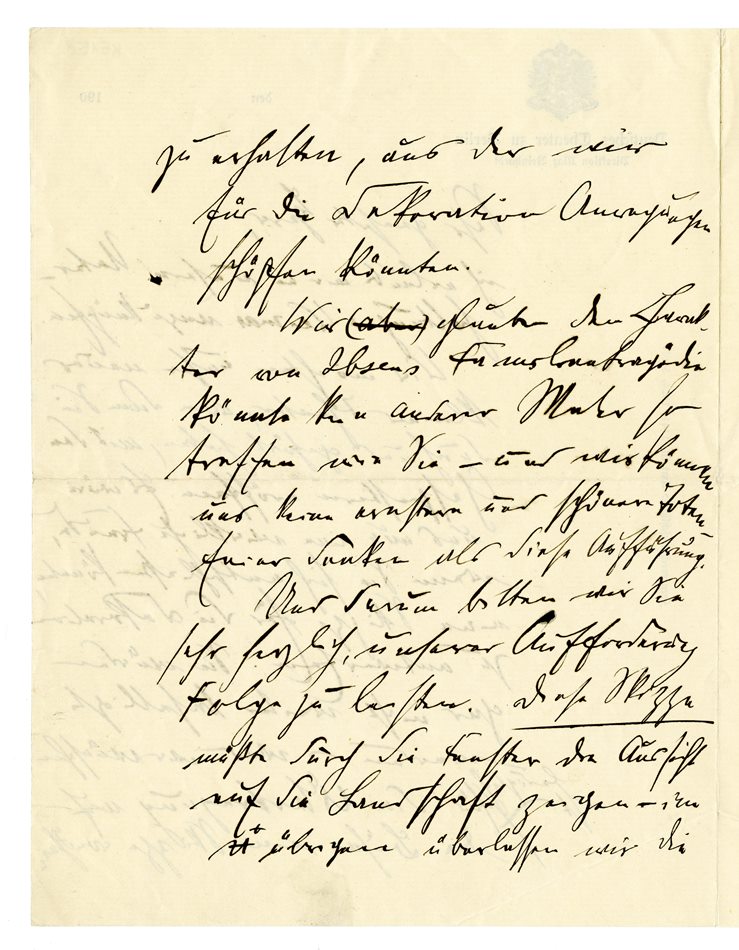 zu erhalten, aus der wir
für die Dekoration Anregungen
schöpfen könnten.
Wir (aber) glauben den Charak-
ter von Ibsens Familientragödie
könnte kein anderer Maler so
treffen wie Sie – und wir können
uns keine ernstere und schönere Toten
feier denken als diese Aufführung.
Und darum bitten wir Sie
sehr herzlich, unserer Aufforderung
Folge zu leisten. Diese Skizze
müßte durch die Fenster die Aussicht
auf die Landschaft zeigen – im
übrigen überlassen wir die